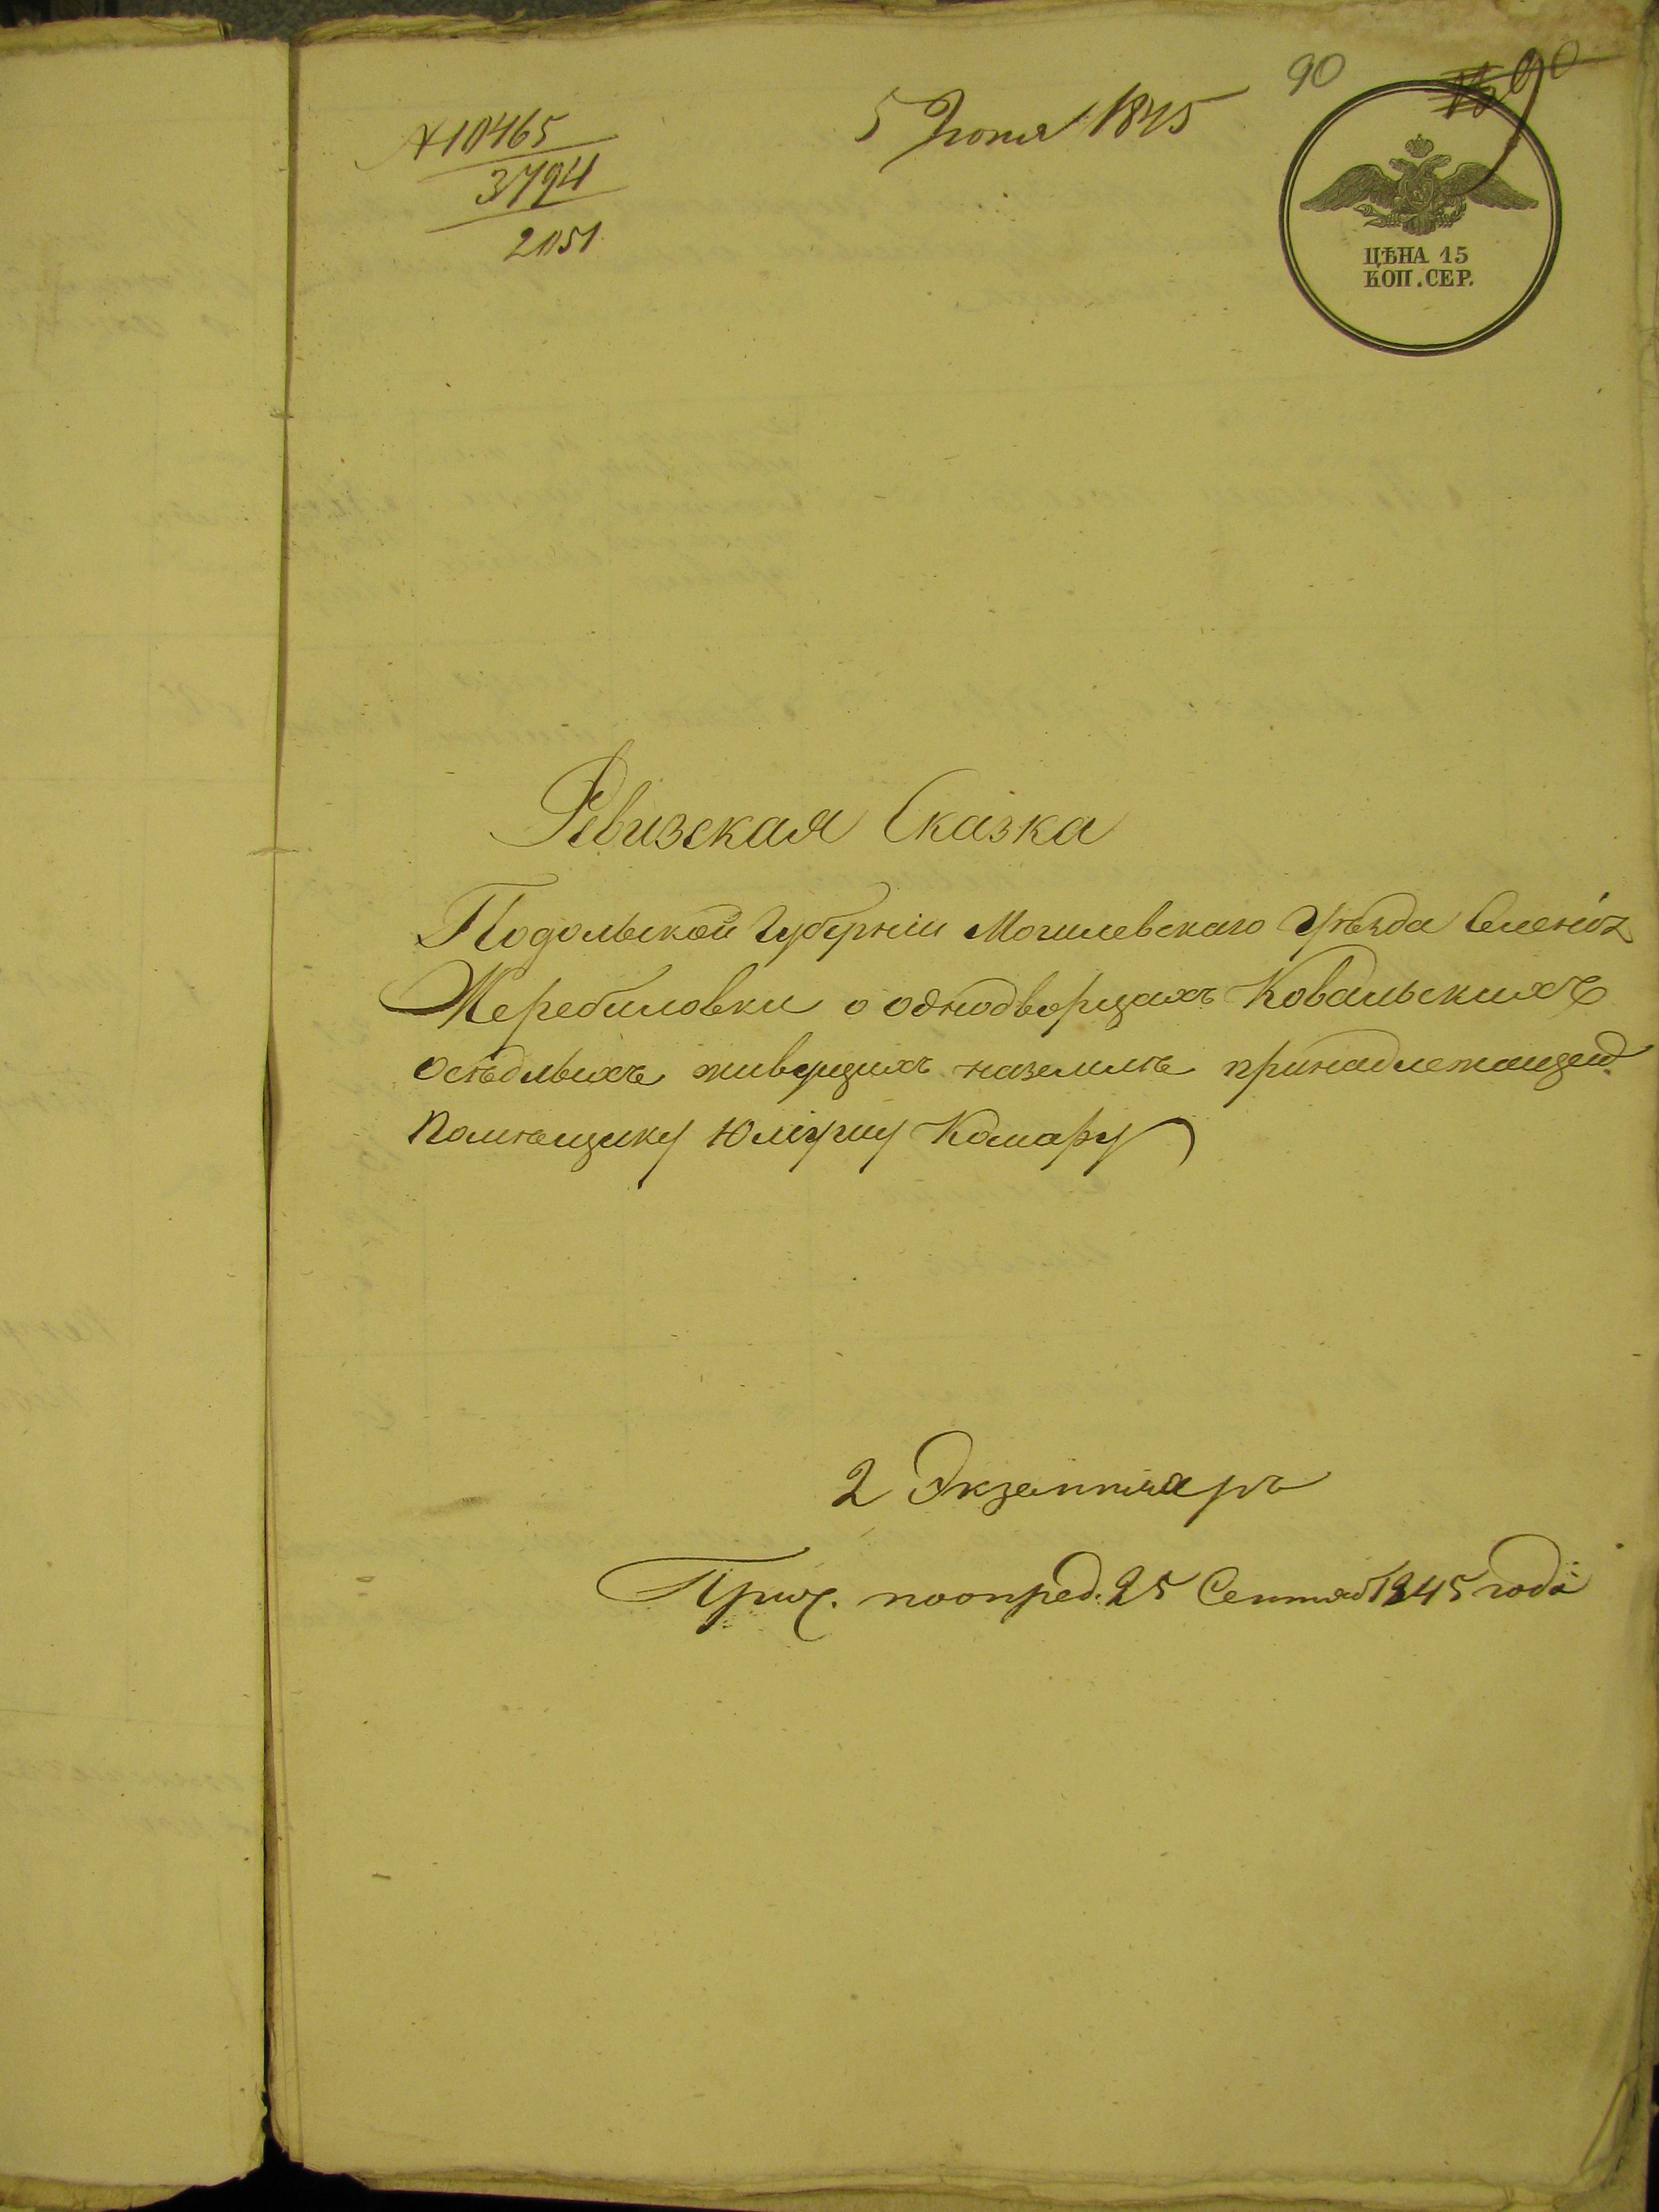 90
№ 10465
3794
2051
5 Іюня 1845
ЦѢНА 15
КОП. СЕР.
Ревизская Сказка
Подольской Губерніи Могилевскаго Уѣзда Селенія
Жеребиловки о однодворцахъ Ковальскихъ
осѣдлыхъ живущихъ наземлѣ принадлежащей
Помѣщику Комару
2 Экземпляръ
поопред. 25 Сентяб 1845 года